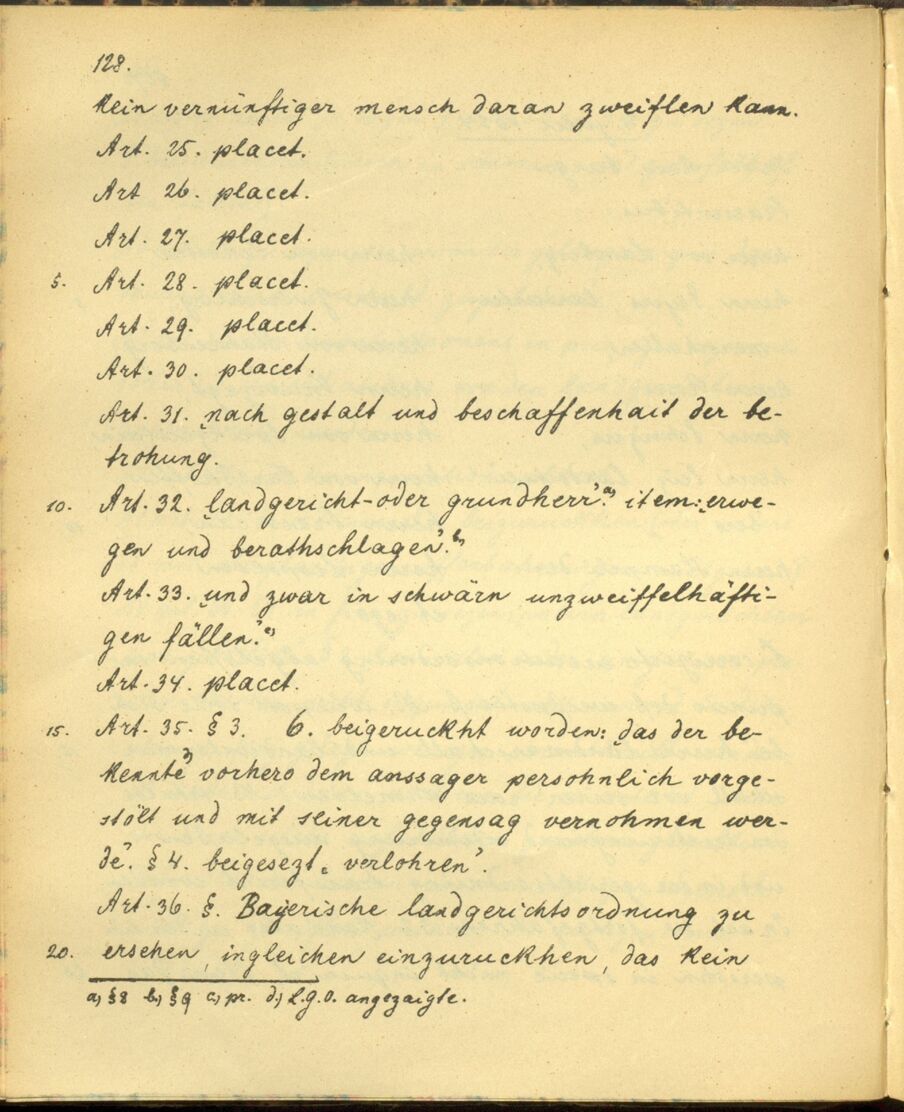 128.
kein vernünftiger mensch daran zweiflen kann.
Art. 25. placet.
Art 26. placet.
Art. 27. placet.
5. Art. 28. placet.
Art. 29. placet.
Art. 30. placet.
Art. 31. „nach gestalt und beschaffenhait der be-
trohung.
10. Art. 32. „landgericht- oder grundherr“.a) item: „erwe-
gen und berathschlagen“.b)
Art. 33. „und zwar in schwärn unzweiffelhäfti-
gen fällen“.c)
Art. 34. placet.
15. Art. 35. § 3. 6. beigeruckht worden: „das der be-
kennte d) vorhero dem aussager persohnlich vorge-
stölt und mit seiner gegensag vernohmen wer-
de“. § 4. beigesezt „verlohren“.
Art. 36. §. Bayerische landgerichtsordnung zu
20. ersehen, ingleichen einzuruckhen, das kein
a) § 8 b) § 9 c) pr. d) L.G.O. angezaigte.